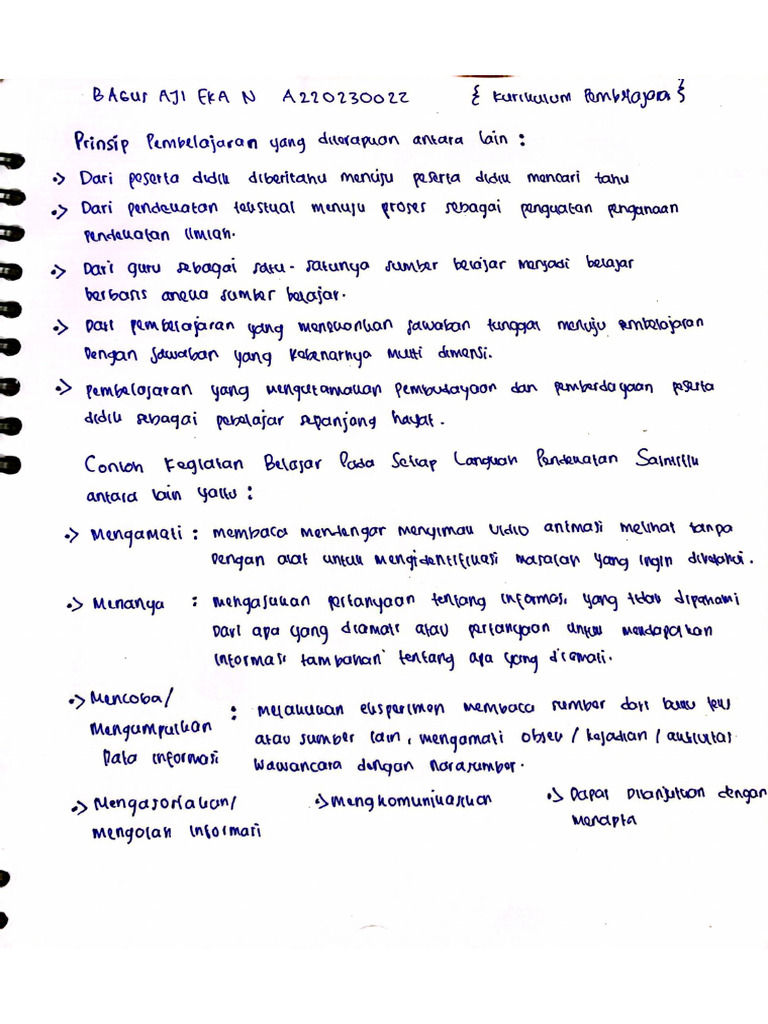 BAGUS AJI EKA N A220230022 { Kurikulum Pembelajaran }
Prinsip Pembelajaran yang diterapkan antara lain :
•> Dari peserta didik diberitahu menuju peserta didik mencari tahu
•> Dari pendekatan tekstual menuju proses sebagai penguatan penggunaan
pendekatan ilmiah.
•> Dari guru sebagai satu-satunya sumber belajar menjadi belajar
berbasis aneka sumber belajar.
•> Dari pembelajaran yang menekankan jawaban tunggal menuju pembelajaran
Dengan jawaban yang kebenarnya multi dimensi.
•> Pembelajaran yang mengutamakan pembudayaan dan pemberdayaan peserta
didik sebagai pebelajar sepanjang hayat.
Contoh Kegiatan Belajar Pada Setiap Langkah Pendekatan Saintifik
antara lain yaitu :
•> Mengamati : membaca mendengar menyimak vidio animasi melihat tanpa
Dengan alat untuk mengidentifikasi masalah yang ingin diketahui.
•> Menanya : mengajukan pertanyaan tentang informasi yang tidak dipahami
Dari apa yang diamati atau pertanyaan untuk mendapatkan
informasi tambahan tentang apa yang diamati.
•> Mencoba/
Mengumpulkan
Data informasi : melakukan eksperimen membaca sumber dari buku teks
atau sumber lain, mengamati objek / kejadian / aktivitas
Wawancara dengan Narasumber.
•> Mengasosiakan/ •> Mengkomunikasikan •> Dapat Dilanjutkan dengan
Mengolah Informasi Mencipta